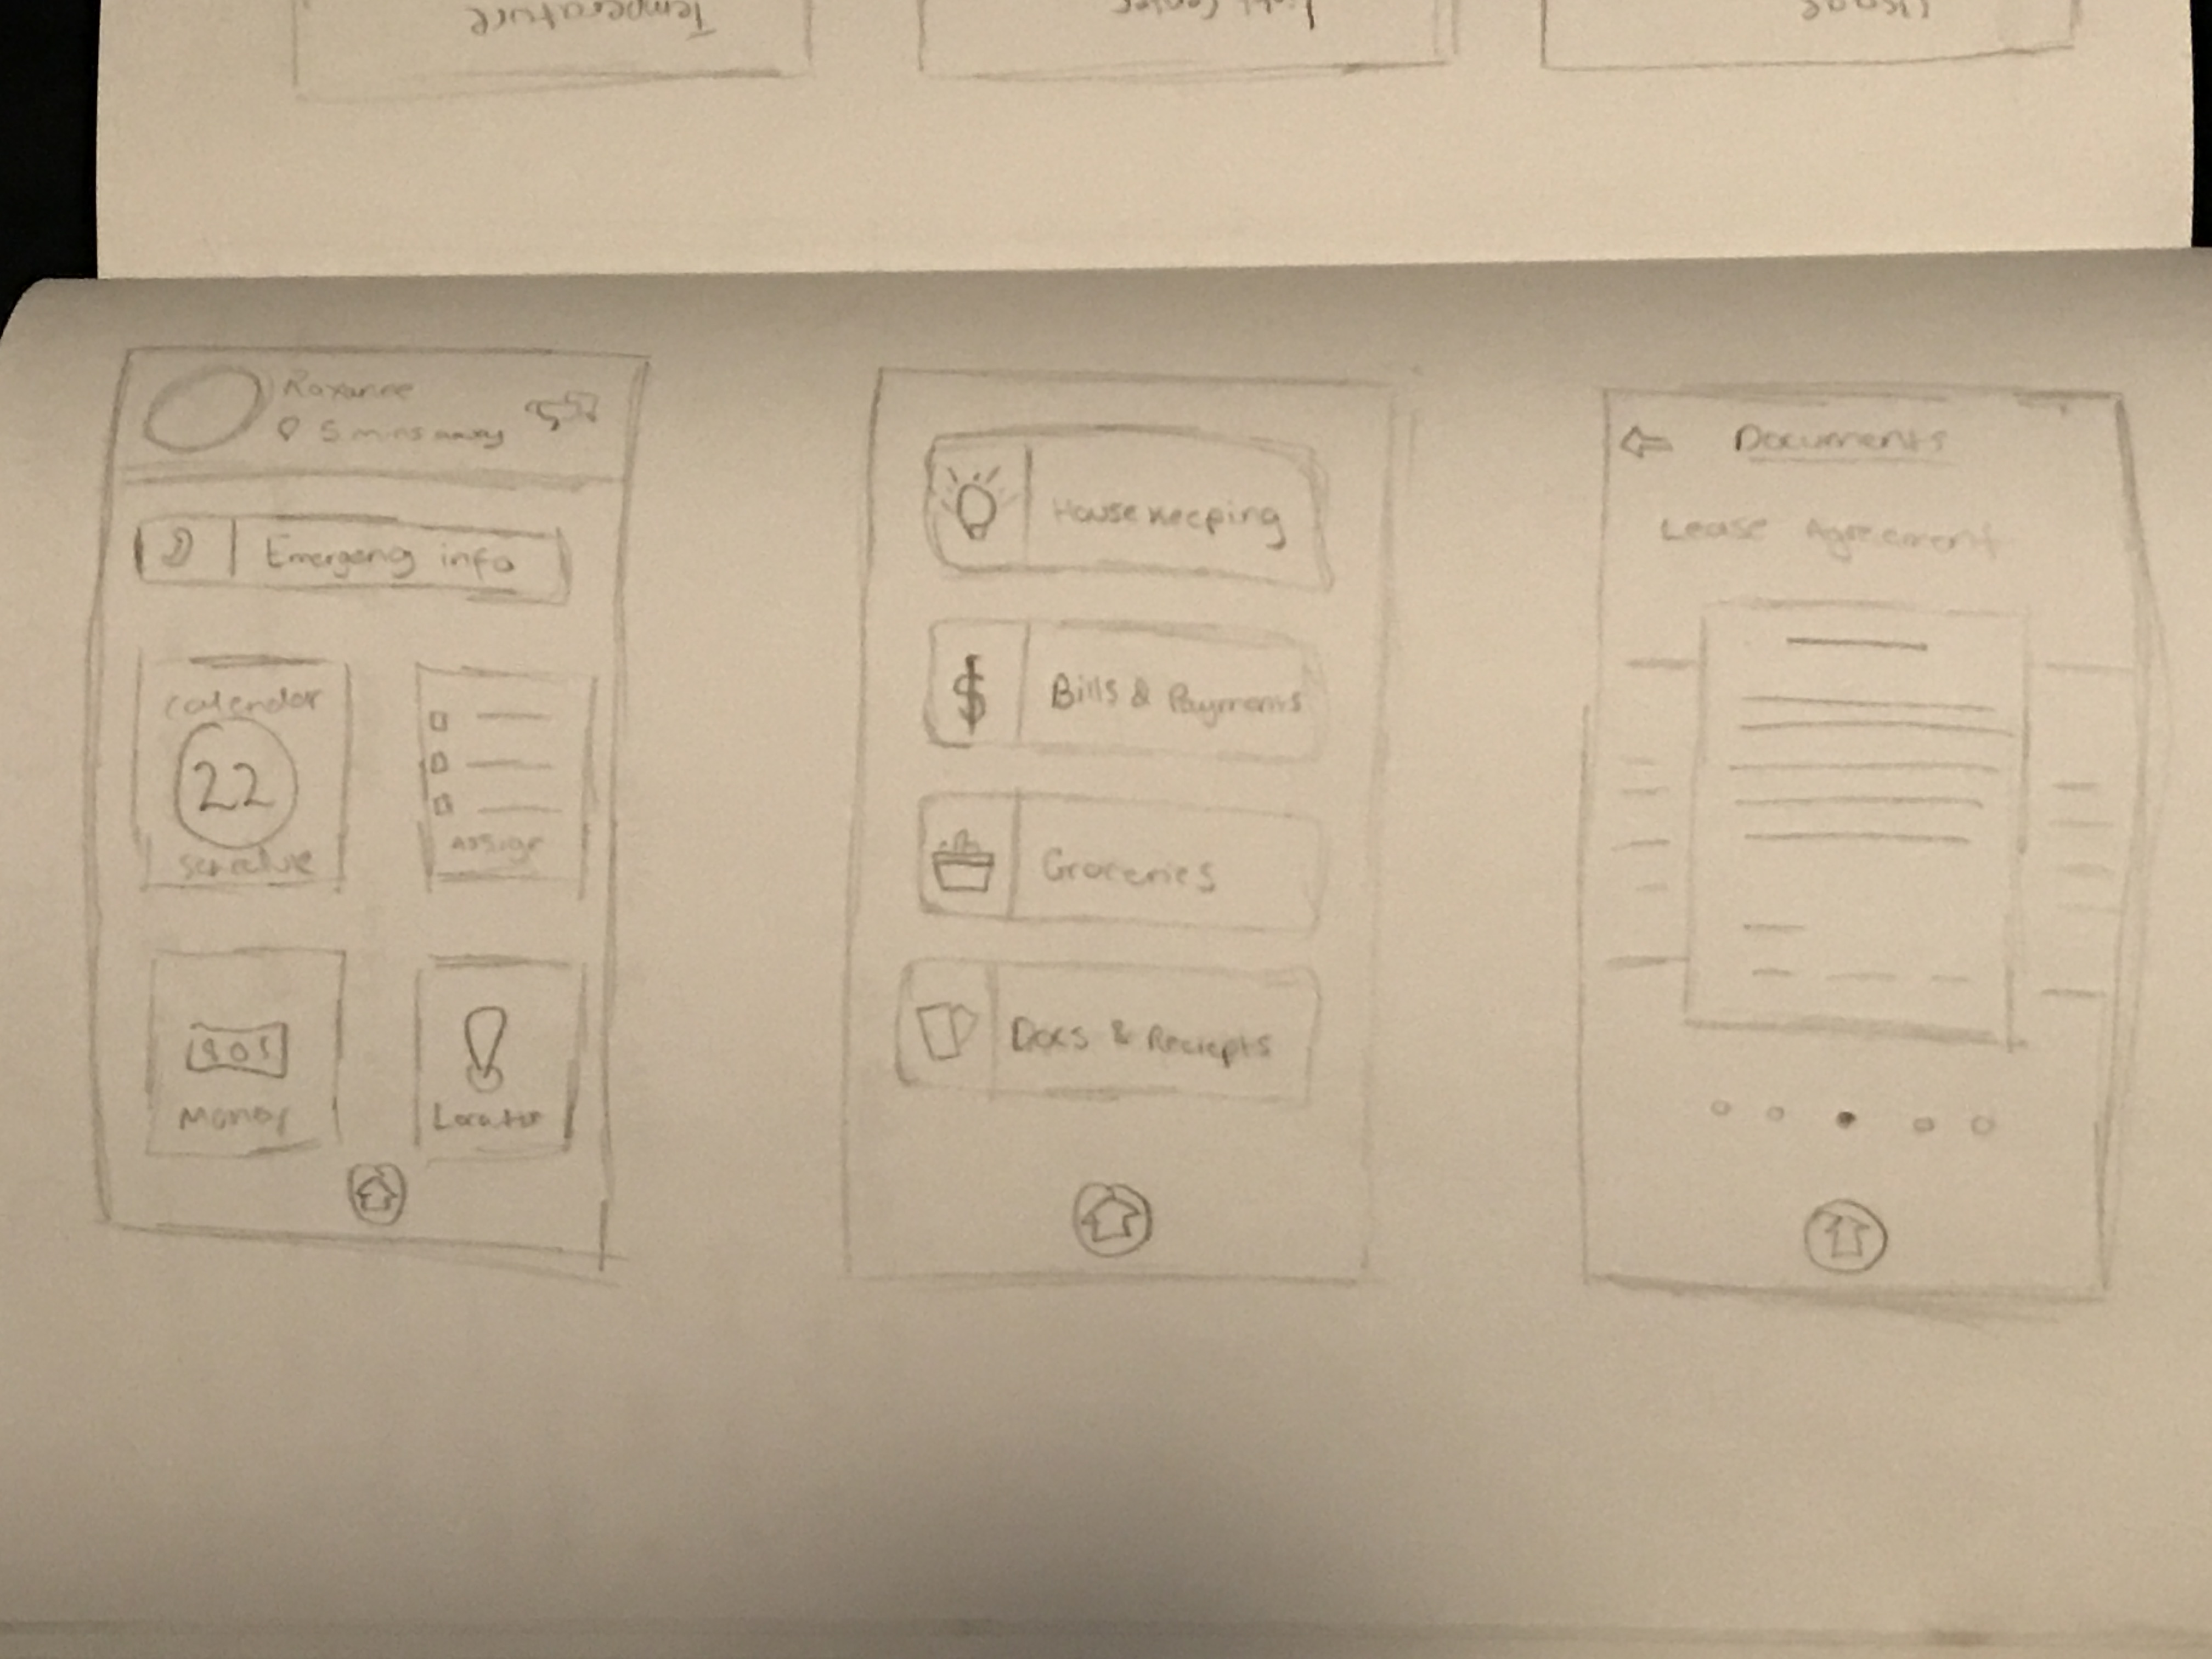 Temperature
Light Center
Usage
Roxanne
5 mins away
Emergency info
Calendar
22
Schedule
Assign
Money
Locator
Housekeeping
$
Bills & Payments
Groceries
Docs & Reciepts
Documents
Lease Agreement